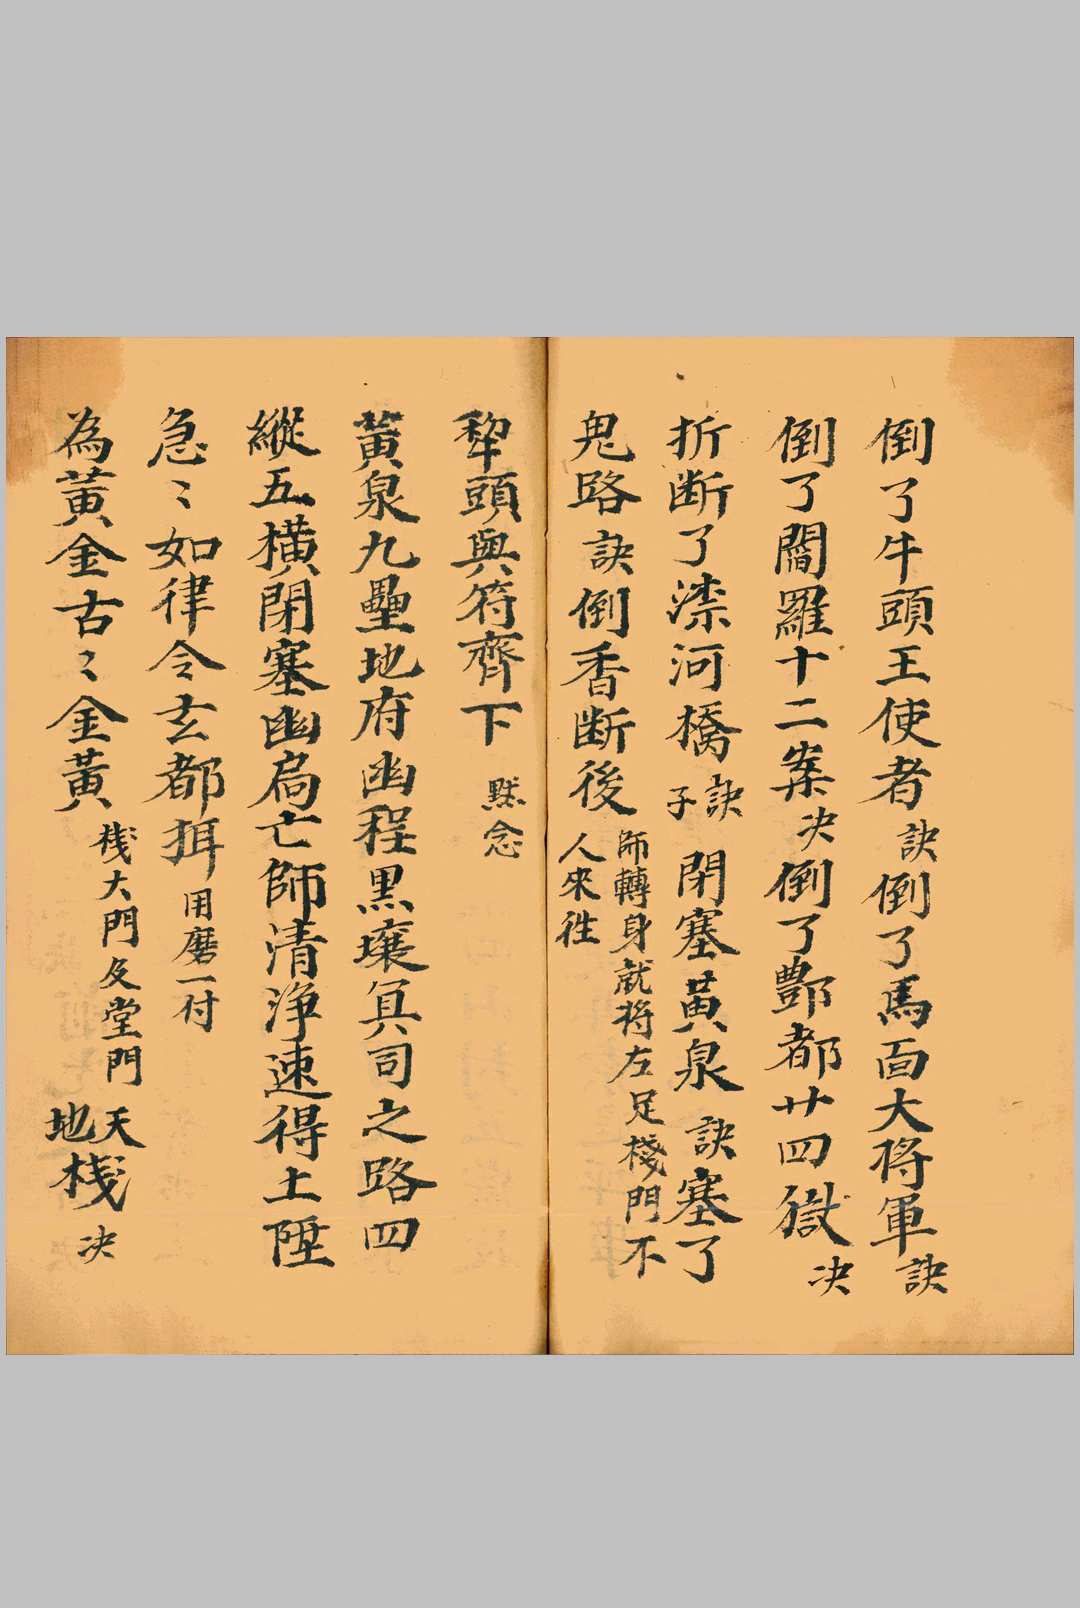 倒了牛頭王使者訣倒了馬面大将軍訣
倒了閻羅十二案决倒了酆都廿四獄决
折断了㴃河橋子訣閉塞黃泉訣塞了
鬼路訣倒香断後師轉身就将左足棧門不人來往
犂頭與符齊下默念
黃泉九壘地府幽程黑壌冥司之路四
縱五橫閉塞幽扃亡師清淨速得土陞
急〻如律令玄都揖用磨一付
為黃金古〻金黃栈大門及堂門天地栈决